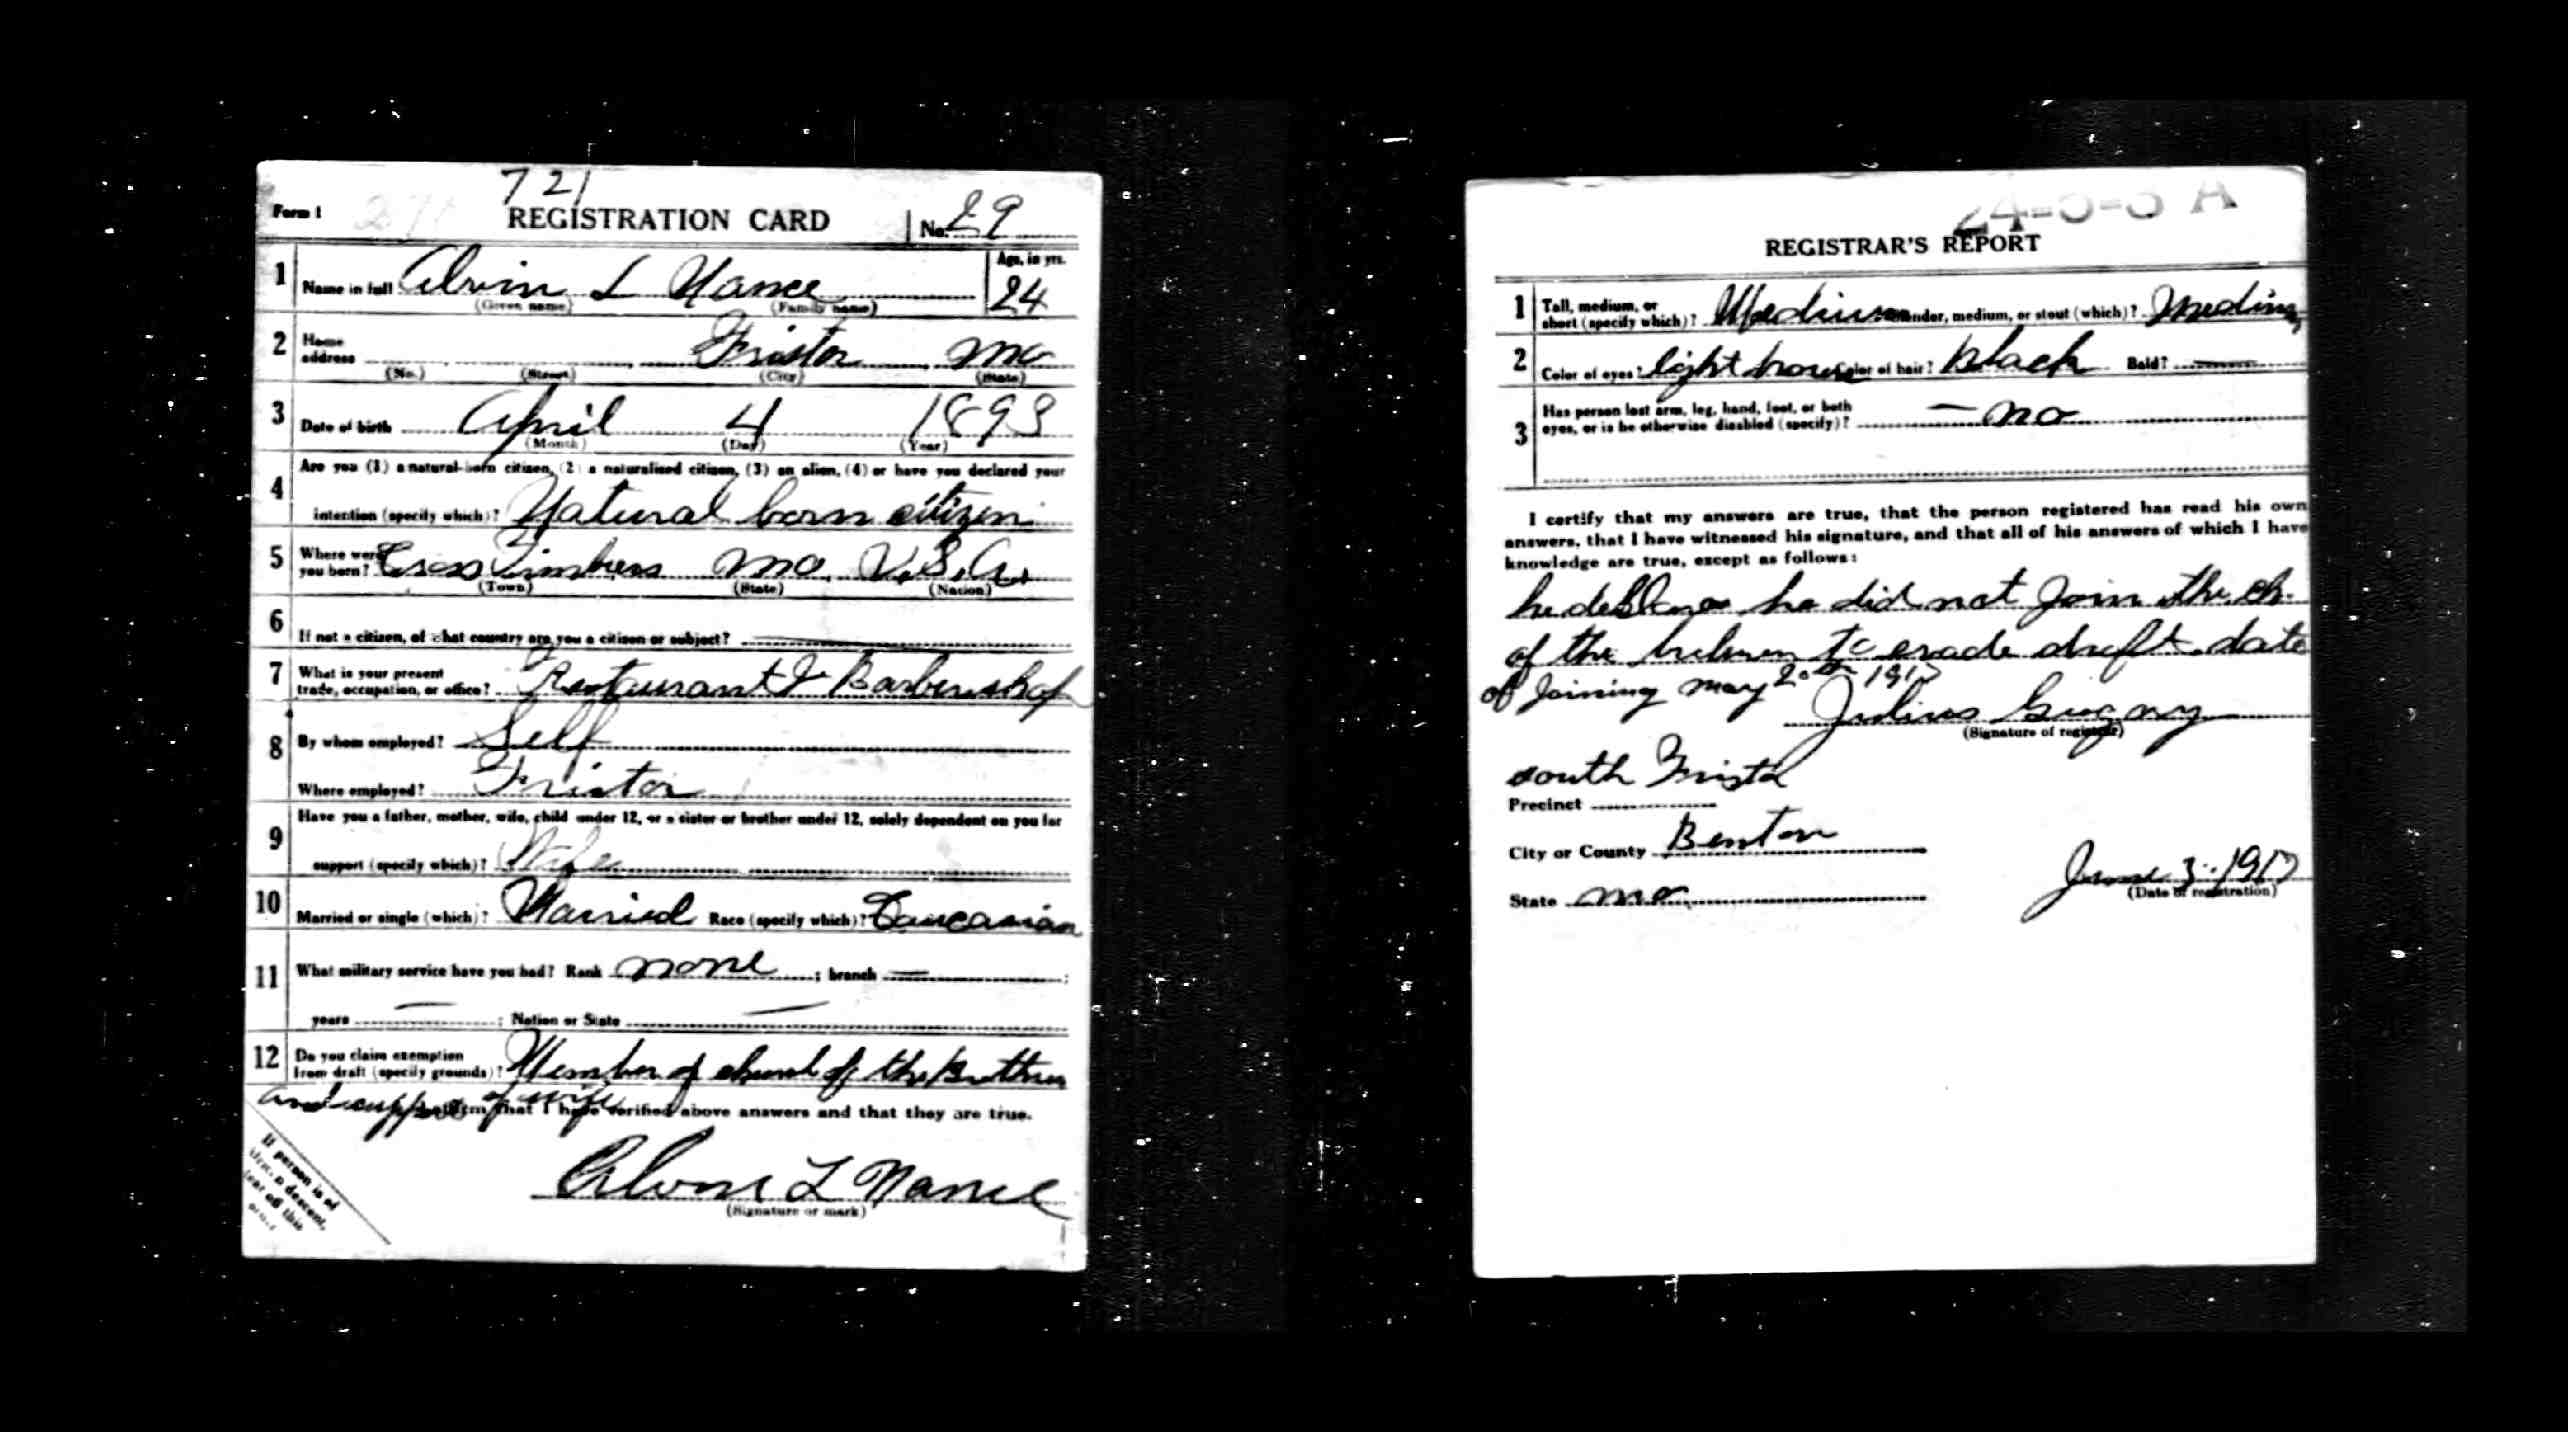 721
Form 1 REGISTRATION CARD No. 29
1 Name in full Alvin L Nance Age, in yrs. 24
(Given name) (Family name)
2 Home address Fristoe Mo
(No.) (Street) (City) (State)
3 Date of birth April 4 1893
(Month) (Day) (Year)
4 Are you (1) a natural-born citizen, (2) a naturalized citizen, (3) an alien, (4) or have you declared your
intention (specify which)? Natural born citizen
5 Where were you born? Cross Timbers Mo. U.S.A.
(Town) (State) (Nation)
6 If not a citizen, of what country are you a citizen or subject?
7 What is your present trade, occupation, or office? Restaurant & Barbershop
8 By whom employed? Self
Where employed? Fristoe
9 Have you a father, mother, wife, child under 12, or a sister or brother under 12, solely dependent on you for
support (specify which)? Wife
10 Married or single (which)? Married Race (specify which)? Caucasian
11 What military service have you had? Rank none ; branch — ;
years — ; Nation or State —
12 Do you claim exemption from draft (specify grounds)? Member of church of the Brethren
and support of wife
I affirm that I have verified above answers and that they are true.
Alvin L Nance
(Signature or mark)
If person is of
descent,
tear off this
24-5-3 A
REGISTRAR'S REPORT
1 Tall, medium, or short (specify which)? Medium Slender, medium, or stout (which)? Medium
2 Color of eyes? light brown Color of hair? Black Bald? —
3 Has person lost arm, leg, hand, foot, or both eyes, or is he otherwise disabled (specify)? — no
I certify that my answers are true, that the person registered has read his own
answers, that I have witnessed his signature, and that all of his answers of which I have
knowledge are true, except as follows:
he he did not Join the ch.
of the to evade draft. date
of Joining may 20th 1917
Julius
(Signature of registrar)
south Fristoe
Precinct
City or County Benton
State Mo
June 3. 1917
(Date of registration)